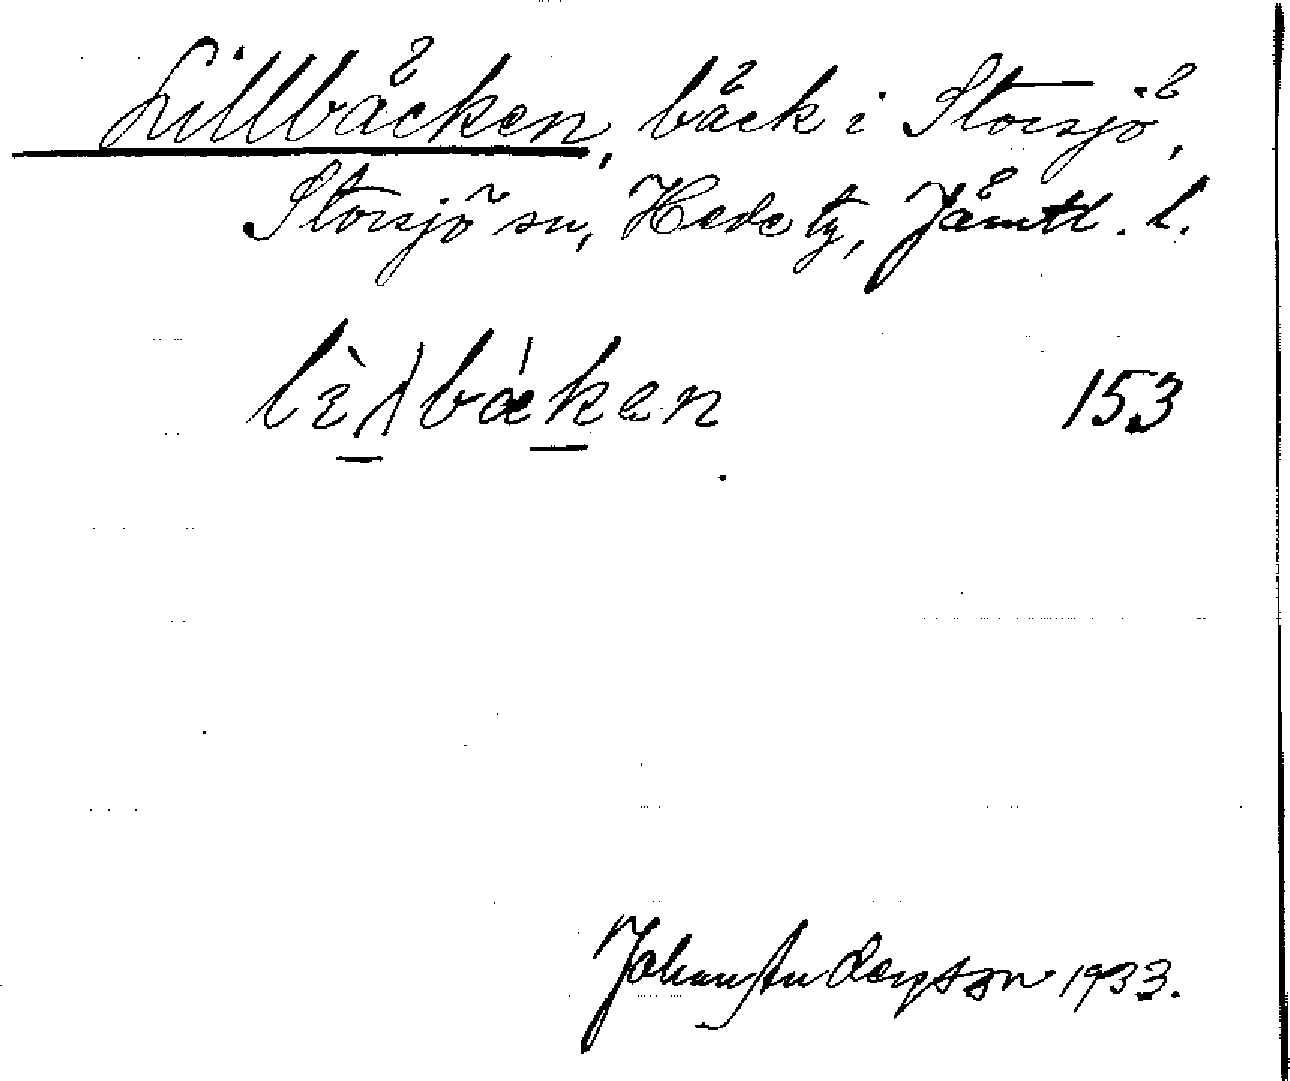 Lillbäcken, bäck i Storsjö,
Storsjö sn, Hede tg, Jämtl. l.
153
Johan Anderson 1933.